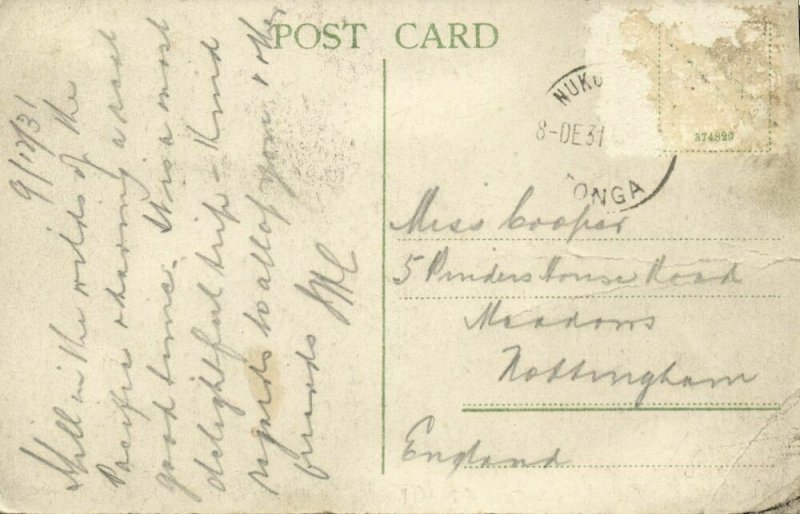 POST CARD
NUKU
8-DE 31
ONGA
374829
9/12/31
Still in the wilds of the
Pacific & having a real
good time. This is a most
delightful trip - Kind
regards to all of you & other
friends
Miss Cooper
5 Pinders House Road
Meadows
Nottingham
England